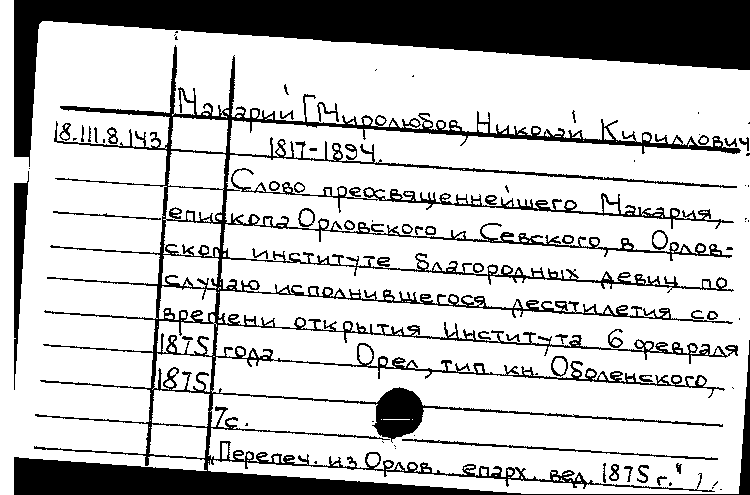 Макарий [Миролюбов, Николай Кириллович
18.III.8.143. 1817-1894.
Слово преосвященнейшего Макария,
епископа Орловского и Севского, в Орлов-
ском институте благородных девиц по
случаю исполнившегося десятилетия со
времени открытия Института 6 февраля
1875 года. Орел, тип. кн. Оболенского,
1875.
7с.
"Перепеч. из Орлов. епарх. вед. 1875 г."